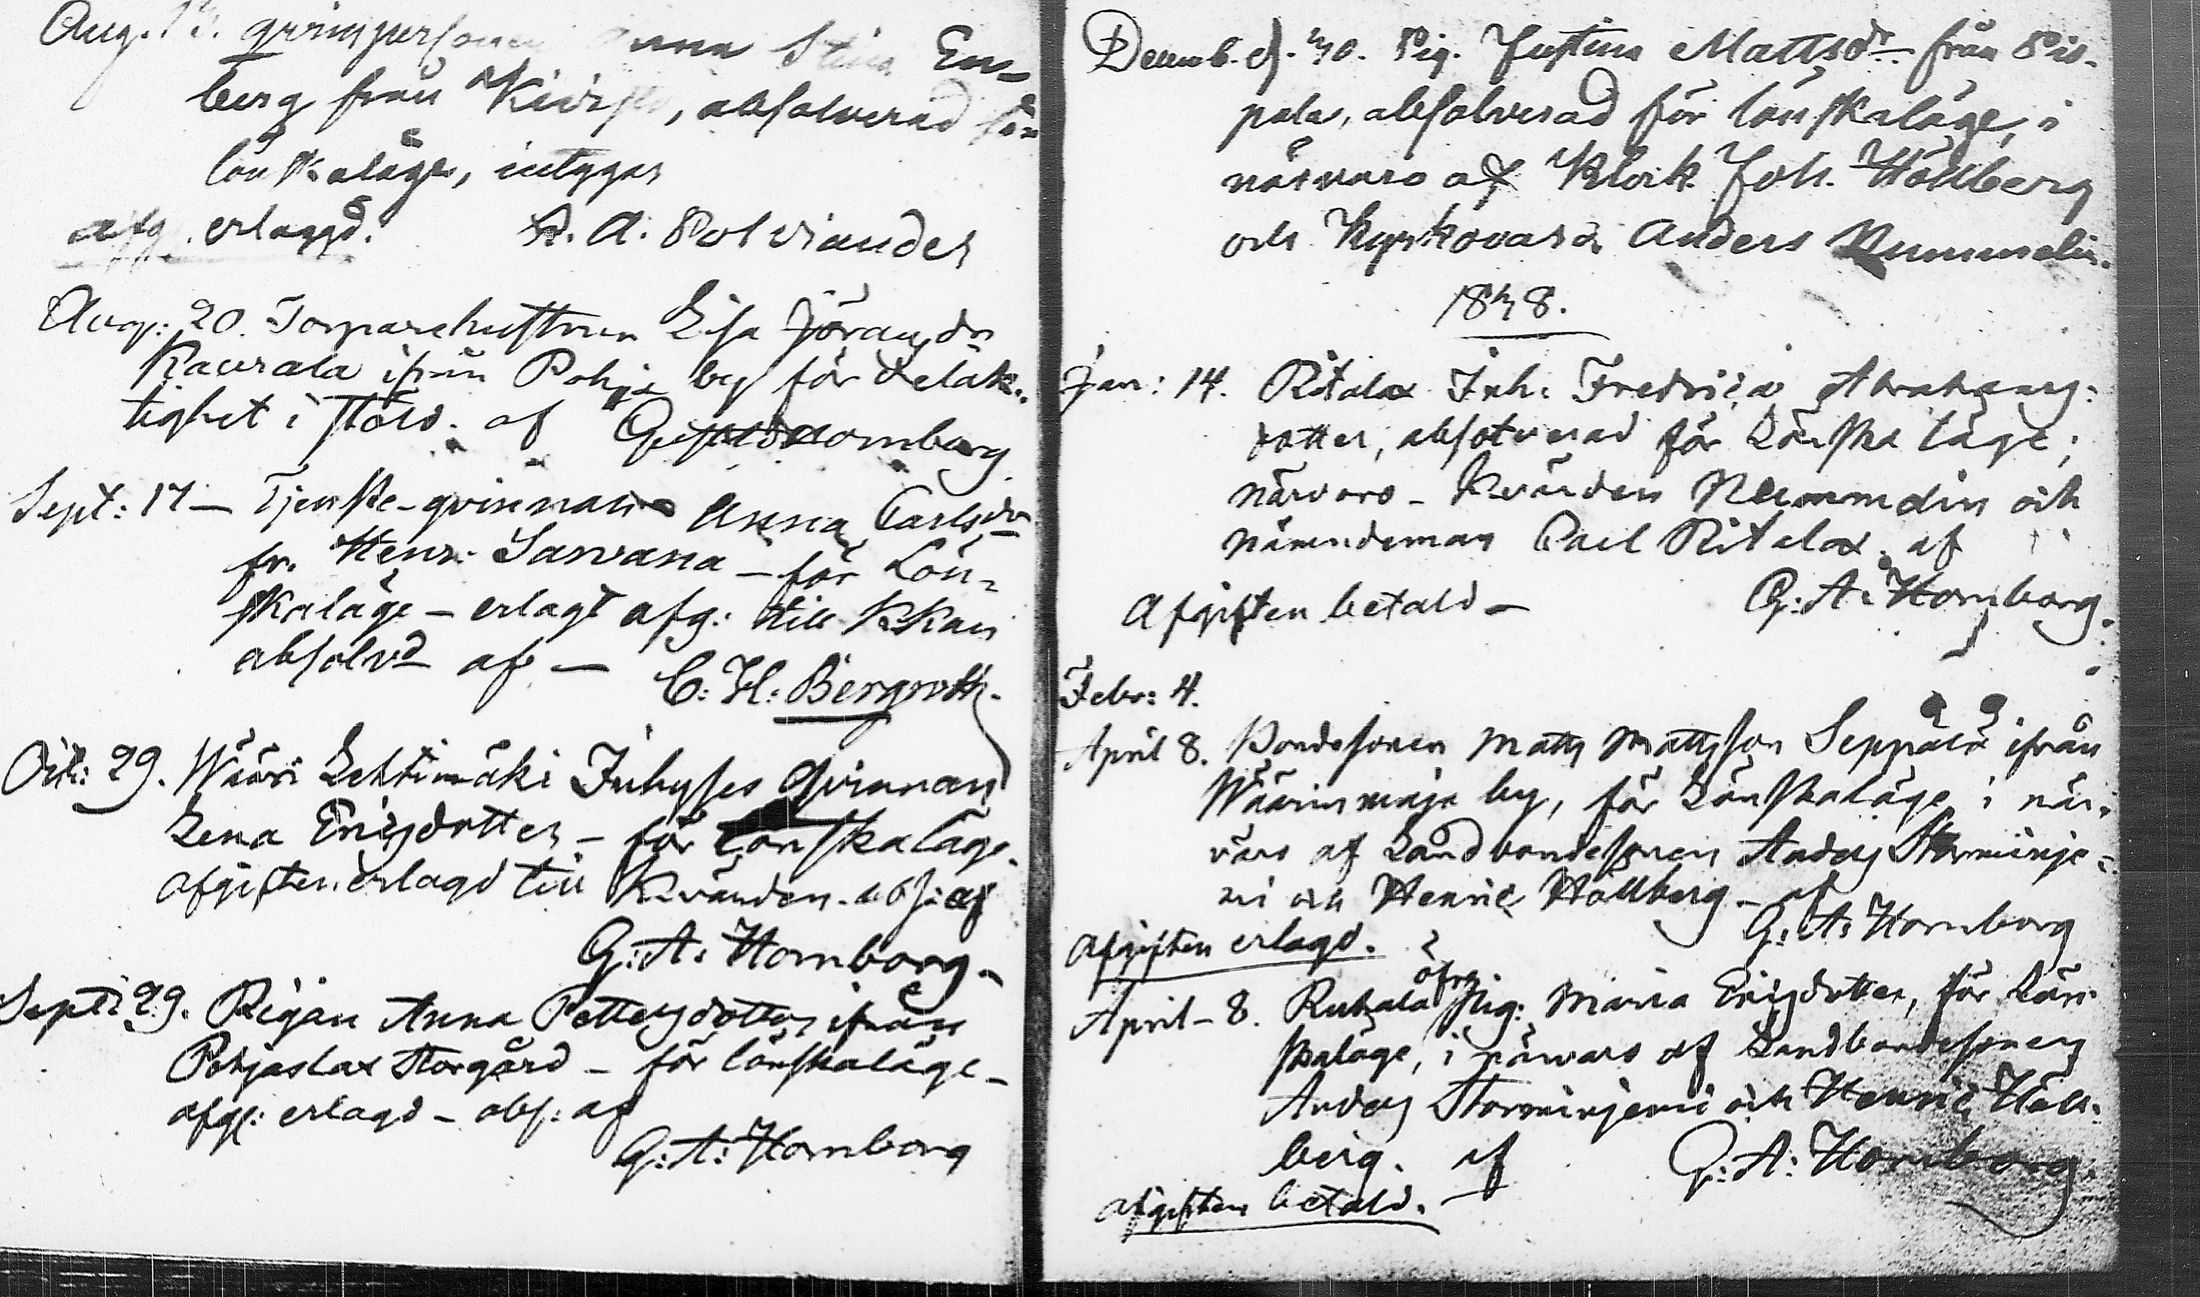 Aug. 15. qvinspersonen Anna Stina En-
berg från Kiviste, absolverad för
lönskaläge, intygar
afg. erlaggd. A. Polviander
Aug: 20. Torparehustrun Lisa Jörans dr
Kaurala ifrån Pohja by för delak-
tighet i stöld. af Hornborg
Sept: 17 – Tjenste-qvinnan Anna Carlsdr
fr. Henr. Sarvana – för Lön-
skaläge – erlagt afg: till Kkan
absolvd af — C: H: Bergroth.
Oct: 29. Wääri Lehtimäki Inhyses qvinnan
Lena Ericsdotter – för Lönskaläge.
afgiften erlagd till Kvärden. abs: af
G: A: Hornborg.
Sept: 29. Pigan Anna Pettersdotter ifrån
Pohjaslax Storgård – för lönskaläge –
afg: erlagd – abs: af
G: A: Hornborg
Decemb. d. Pig. Justina Mattsdr från Pis-
pala, absolverad för lönskaläge, i
närvaro af Klock. Joh. Hållberg
och Kyrkovärd. Anders Nummelin.
1848.
Jan: 14. Ritalax Inh: Fredrica Abrahams-
dotter, absolverad för Lönska läge;
närvaro – Kvärden Nummelin och
nämndeman Carl Ritalax. af
Afgiften betald – G: A: Hornborg.
Febr: 4.
April 8. Bondesonen Matts Mattsson Seppälä ifrån
Wäärinmaja by, för Lönskaläge i när-
varo af Landbondesonen Anders Storminje-
mi och Henric Hållberg – af
G: A: Hornborg
Afgiften erlagd.
April – 8. Ruhala öfre Pig: Maria Ericsdotter, för Lön-
skaläge, i närvaro af Landbondesonen
Anders Storminjemi och Henric Håll-
berg. af G: A: Hornborg.
afgiften betald.